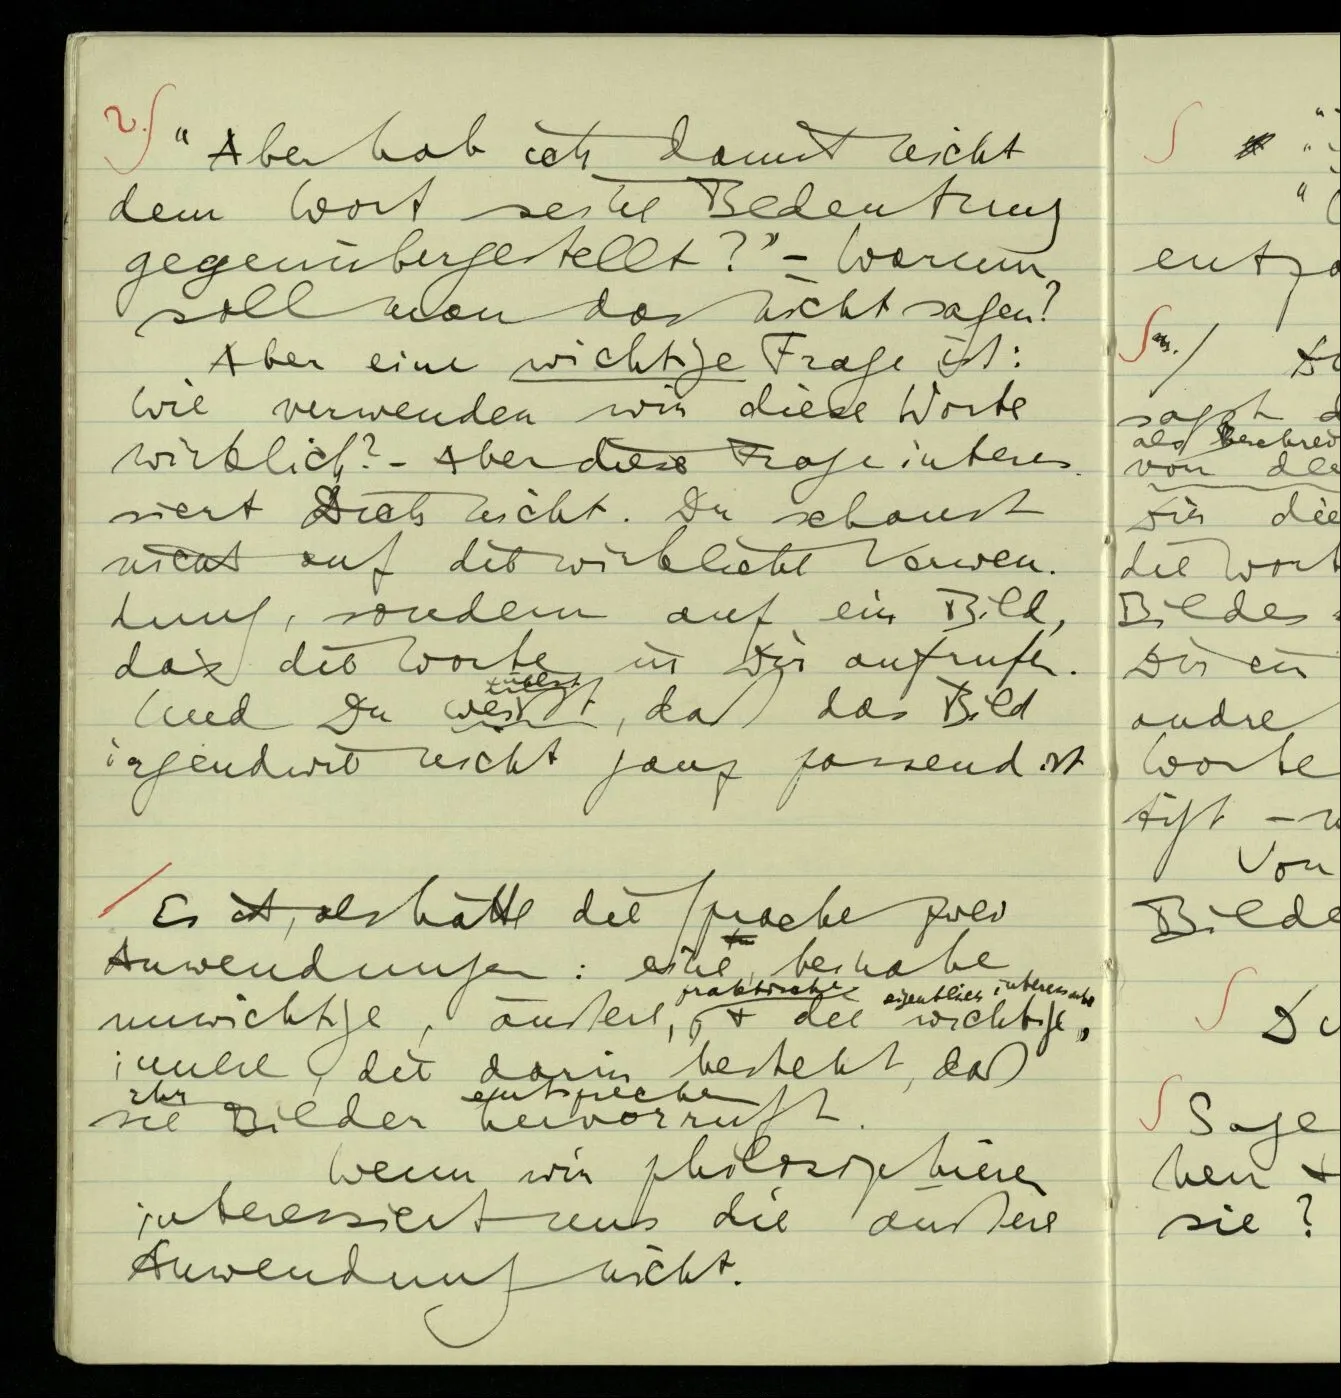 "Aber hab ich damit nicht
dem Wort seine Bedeutung
gegenübergestellt?" – Warum
soll man das nicht sagen?
Aber eine wichtige Frage ist:
Wie verwenden wir diese Worte
wirklich? – Aber diese Frage interes-
siert Dich nicht. Du schaust
nicht auf die wirkliche Verwen-
dung, sondern auf ein Bild,
das die Worte in Dir aufrufen.
fühlst
Und Du weißt, daß das Bild
irgendwie nicht ganz passend ist
Es ist, als hätte die Sprache zwei
Anwendungen: eine, beinahe
praktische eigentlich interessante
unwichtige, äußere, & die wichtige,
innere, die darin besteht, daß
ihr entsprechen
sie Bilder hervorruft.
Wenn wir philosophieren
interessiert uns die äußere
Anwendung nicht.
sagst
als
von
Dir die
die
Bildes
Dir ein
andre
Worte
Von
Bilde
Sage
sie?